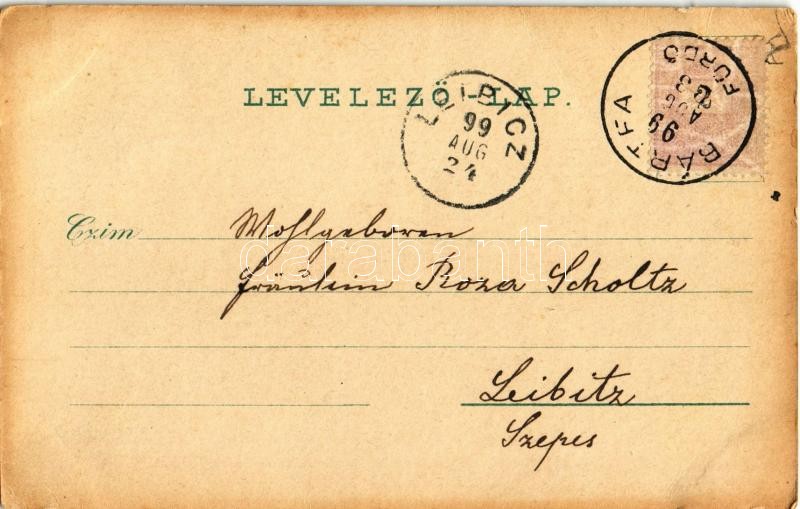 LEVELEZŐ-LAP.
LEIBICZ
99
AUG
24
BÁRTFA
99
AUG
23
FÜRDŐ
Czim
Wohlgeboren
Fräulein Roza Scholtz
Leibitz
Szepes
darabanth